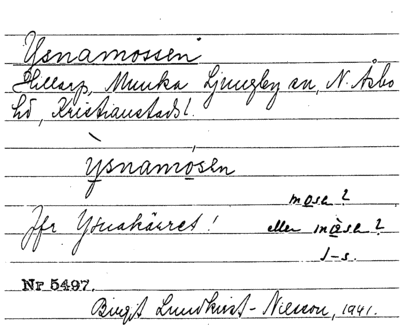 Ysnamossen
Hillarp, Munka Ljungby sn, N. Åsbo
hd, Kristianstads l.
ỳsnamosen
mose?
Jfr Ysnakärret! eller måse?
J-s.
Nr 5497.
Birgit Lundkvist-Nilsson, 1941.